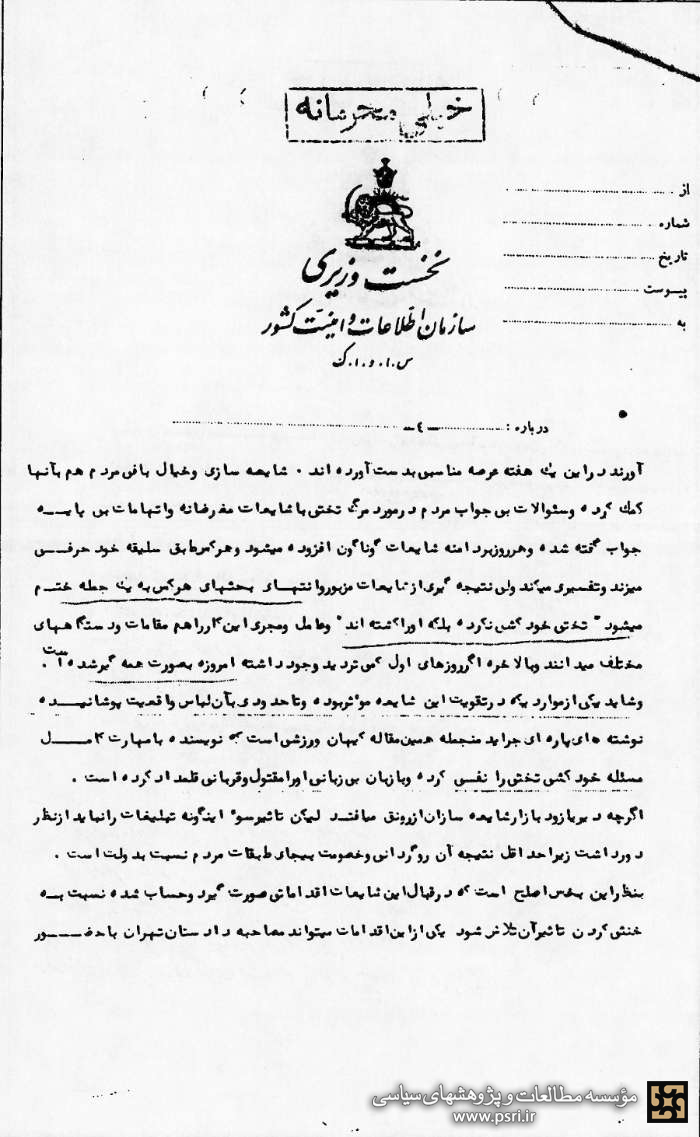 خیلی محرمانه
از
شماره
تاریخ
پیوست
به
نخست وزیری
سازمان اطلاعات و امنیت کشور
س.ا.و.ا.ک
درباره : -٤-
آورند دراین یک هفته عرصه مناسبی بدست آورده اند . شایعه سازی وخیال بافی مردم هم بآنها
کمک کرده وسئوالات بی جواب مردم درمورد مرگ تختی باشایعات مغرضانه واتهامات بی پایــه
جواب گفته شده وهرروزبردامنه شایعات گوناگون افزوده میشود وهرکس طبق سلیقه خود حرفــی
میزند وتفسیری میکند ولی نتیجه گیری ازشایعات مزبوروانتهای بحثهای هرکس به یک جمله ختــم
میشود " تختی خودکشی نکرده بلکه اوراکشته اند " وعامل ومجری این کارراهم مقامات ودستگاههای
مختلف میدانند وبالاخره اگرروزهای اول کمی تردید وجود داشته امروزه بصورت همه گیرشده است .
وشاید یکی ازمواردیکه درتقویت این شایعه موثربوده وتاحدودی بآن لباس واقعیت پوشانیــده
نوشته های پاره ای جراید منجمله همین مقاله کیهان ورزشی است که نویسنده بامهارت کامــل
مسئله خودکشی تختی را نفی کرده وبازبان بی زبانی اورامقتول وقربانی قلمداد کرده است .
اگرچه دیریازود بازارشایعه سازان ازرونق میافتد لیکن تاثیرسوء اینگونه تبلیغات رانباید ازنظر
دورداشت زیراحداقل نتیجه آن روگردانی وخصومت بیجای طبقات مردم نسبت بدولت است .
بنظراین بخش اصلح است که درقبال این شایعات اقداماتی صورت گیرد وحساب شده نسبت بــه
خنثی کردن تاثیرآن تلاش شود یکی ازاین اقدامات میتواند مصاحبه دادستان تهران باحضــور
مؤسسه مطالعات و پژوهشهای سیاسی
www.psri.ir